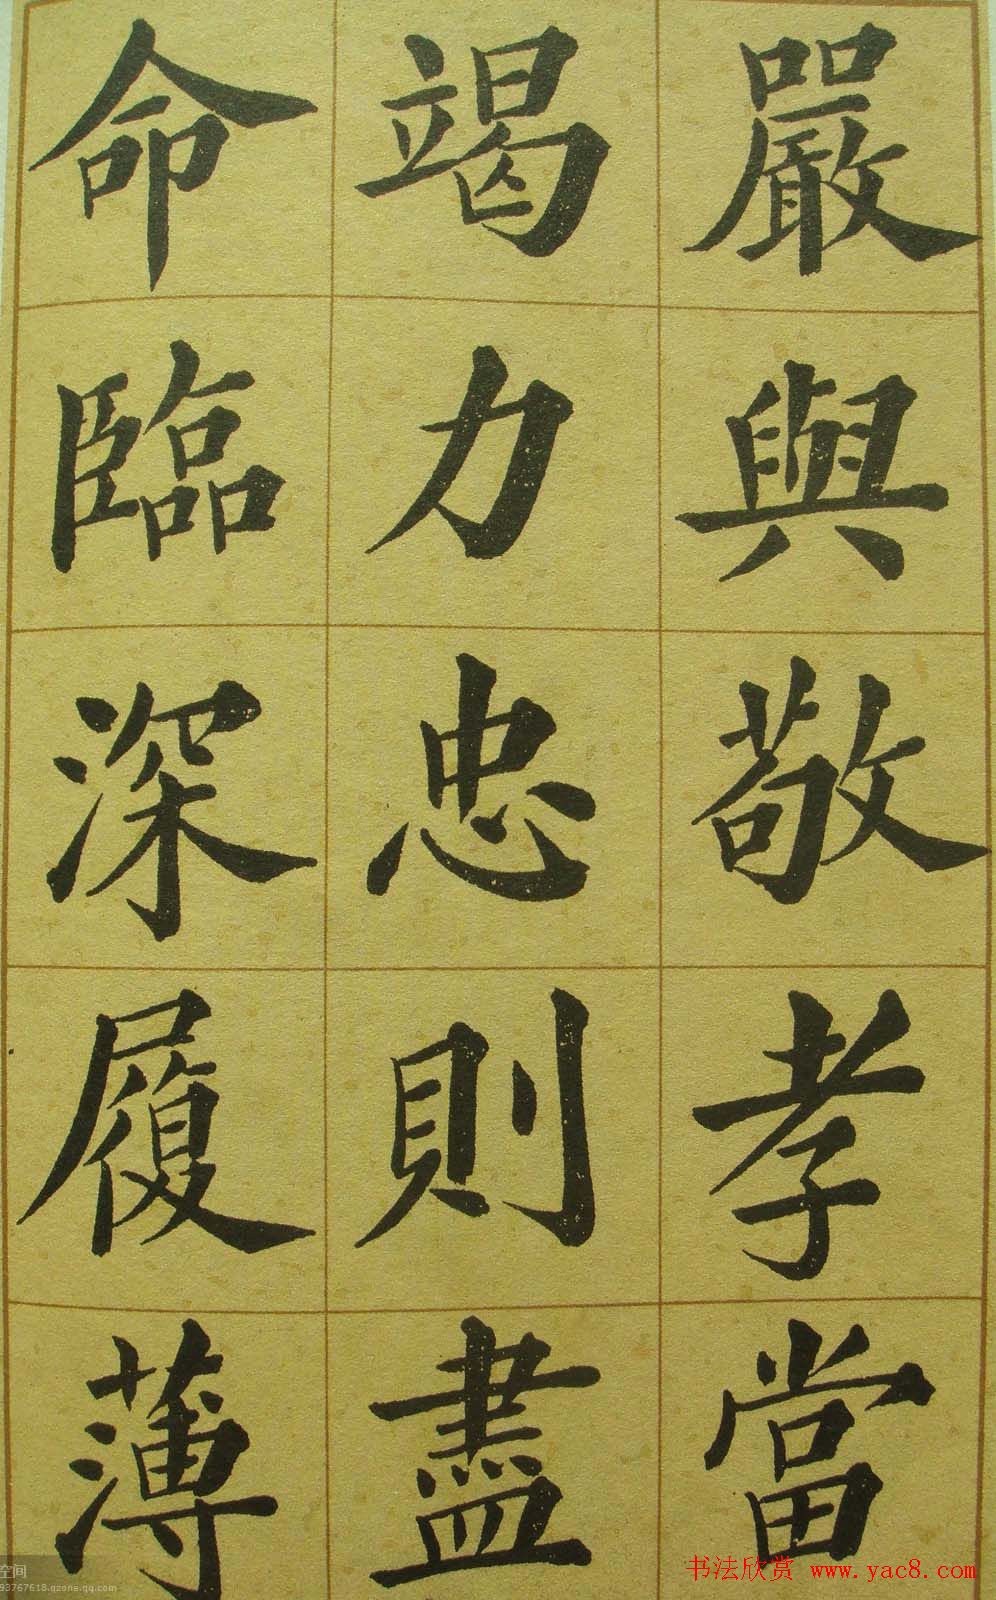 嚴與敬孝當
竭力忠則盡
命臨深履薄
空间
93767618.qzone.qq.com
书法欣赏 www.yac8.com